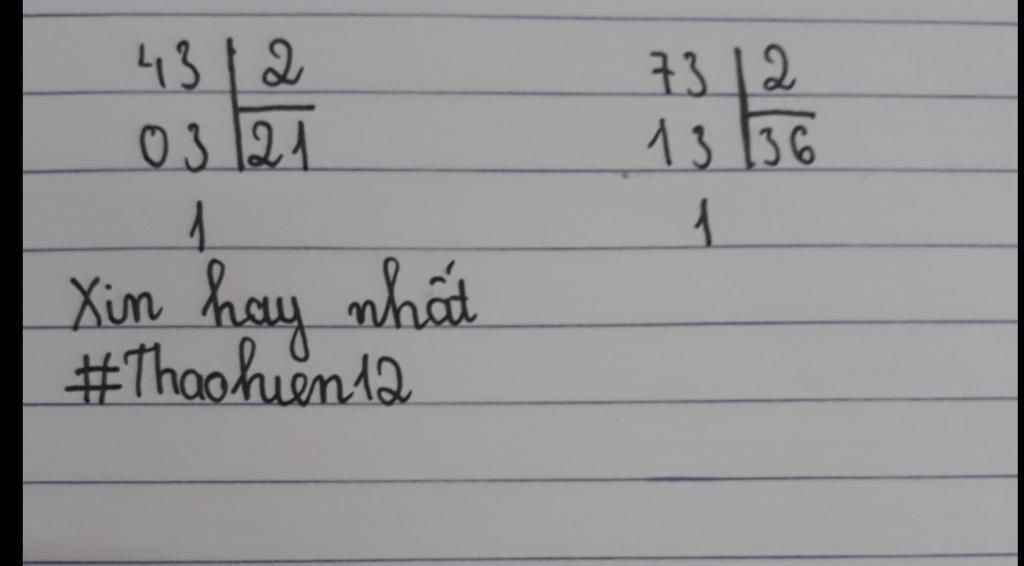 43 | 2 73 | 2
03 | 21 13 | 36
1 1
Xin hay nhất
#Thaohuen12